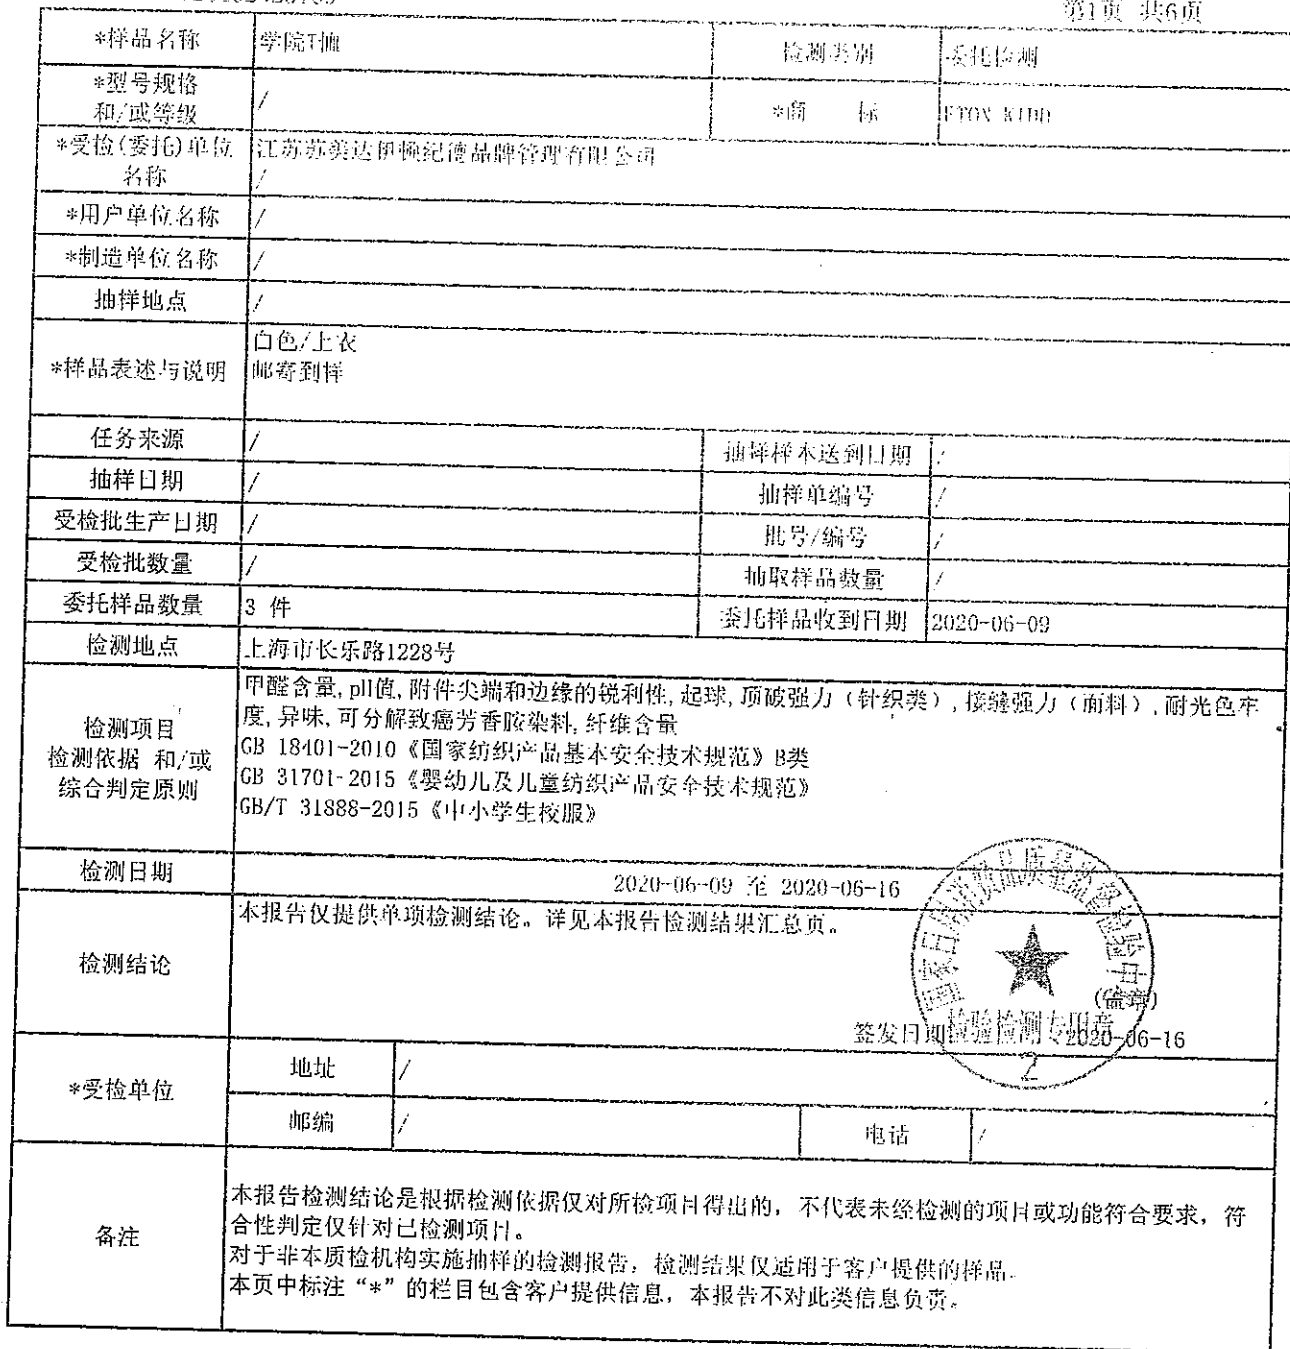 第1页 共6页
*样品名称 学院T恤 检测类别 委托检测
*型号规格
和/或等级 / *商 标 ETON KIDD
*受检(委托)单位
名称
江苏苏美达伊顿纪德品牌管理有限公司
/
*用户单位名称 /
*制造单位名称 /
抽样地点 /
*样品表述与说明
白色/上衣
邮寄到样
任务来源 / 抽样样本送到日期 /
抽样日期 / 抽样单编号 /
受检批生产日期 / 批号/编号 /
受检批数量 / 抽取样品数量 /
委托样品数量 3 件 委托样品收到日期 2020-06-09
检测地点 上海市长乐路1228号
检测项目
检测依据 和/或
综合判定原则
甲醛含量, pH值, 附件尖端和边缘的锐利性, 起球, 顶破强力（针织类）, 接缝强力（面料）, 耐光色牢
度, 异味, 可分解致癌芳香胺染料, 纤维含量
GB 18401-2010《国家纺织产品基本安全技术规范》B类
GB 31701-2015《婴幼儿及儿童纺织产品安全技术规范》
GB/T 31888-2015《中小学生校服》
检测日期 2020-06-09 至 2020-06-16
检测结论
本报告仅提供单项检测结论。详见本报告检测结果汇总页。
(盖章)
签发日期 2020-06-16
检验检测专用章
2
*受检单位 地址 /
邮编 / 电话 /
备注
本报告检测结论是根据检测依据仅对所检项目得出的，不代表未经检测的项目或功能符合要求，符
合性判定仅针对已检测项目。
对于非本质检机构实施抽样的检测报告，检测结果仅适用于客户提供的样品。
本页中标注“*”的栏目包含客户提供信息，本报告不对此类信息负责。